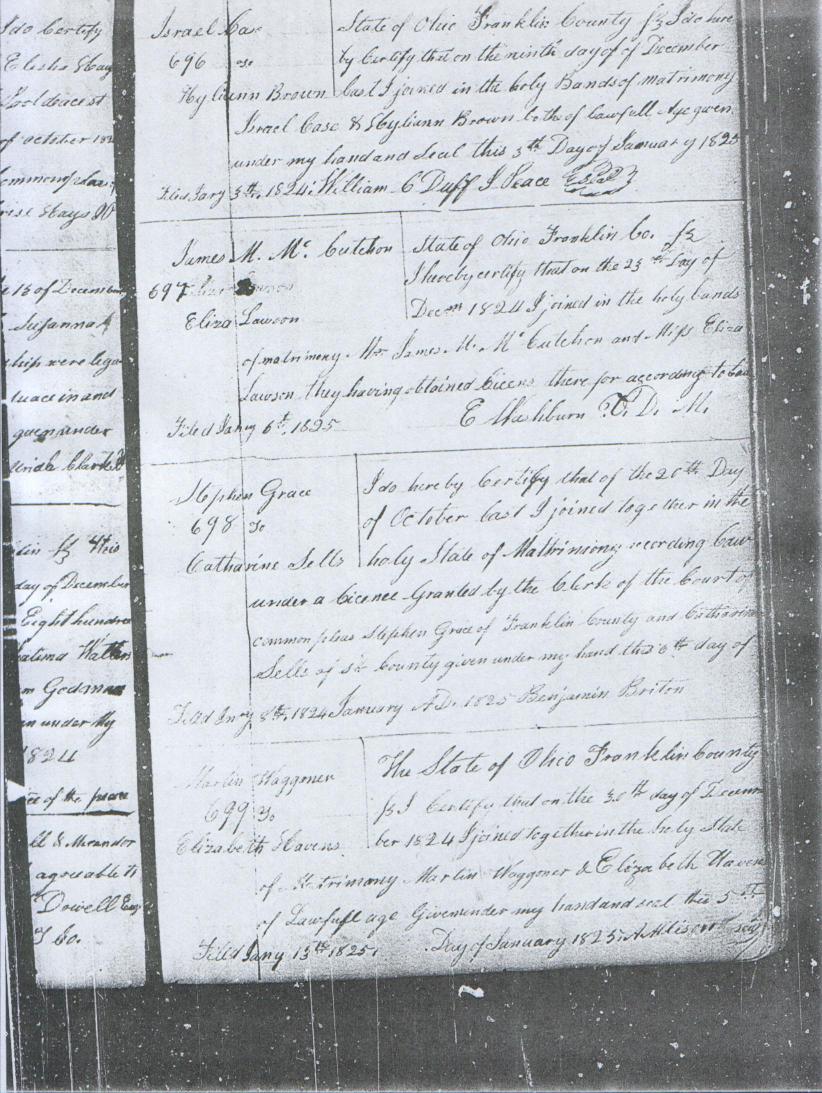 I do Certify
Elisha Hay
of october 182
rise Hays
e 15 of Decembe
Susanna A
ship were lega
peace in and
given under
Clarke
lin fs this
day of December
Eight hundred
Walten
m Godman
en under My
1824
ice of the peace
ll & Merandor
agreeable to
Dowell Esq
Co.
Israel Case State of Ohio Franklin County fs I do here
696 To by Certify that on the ninth day of of December
Hyliann Brown last I joined in the holy Bands of matrimony
Israel Case & Hyliann Brown both of lawfull Age given
under my hand and Seal this 3th Day of January 1825
Filed Jary 3th, 1824: William C Duff J Peace Seal
James M. Mc Cutchon State of Ohio Franklin Co. fs
697 I hereby certify that on the 23th Day of
Eliza Lawson Decm 1824 I joined in the holy bands
of matrimony Mr James M. Mc Cutchon and Miss Eliza
Lawson they having obtained licens there for according to law
Filed Jany 6th, 1825 E Washburn V. D. M.
Stephen Grace I do hereby Certify that of the 20th Day
698 To of October last I joined together in the
Catharine Sells holy State of Mathrimony according Law
under a licence Granted by the Clerk of the Court of
common pleas Stephen Grace of Franklin County and Catharine
Sells of sd County given under my hand the 6th day of
Filed Jany 8th, 1824 January A.D. 1825 Benjamin Briton
Martin Waggoner The State of Ohio Franklin County
699 To fs I Certify that on the 30th day of Decem
Elizabeth Havens ber 1824 I joined together in the holy State
of Matrimony Martin Waggoner & Elizabeth Haven
of Lawfull age Given under my hand and seal this 5th
Filed Jany 13th 1825: Day of January 1825: A Allison